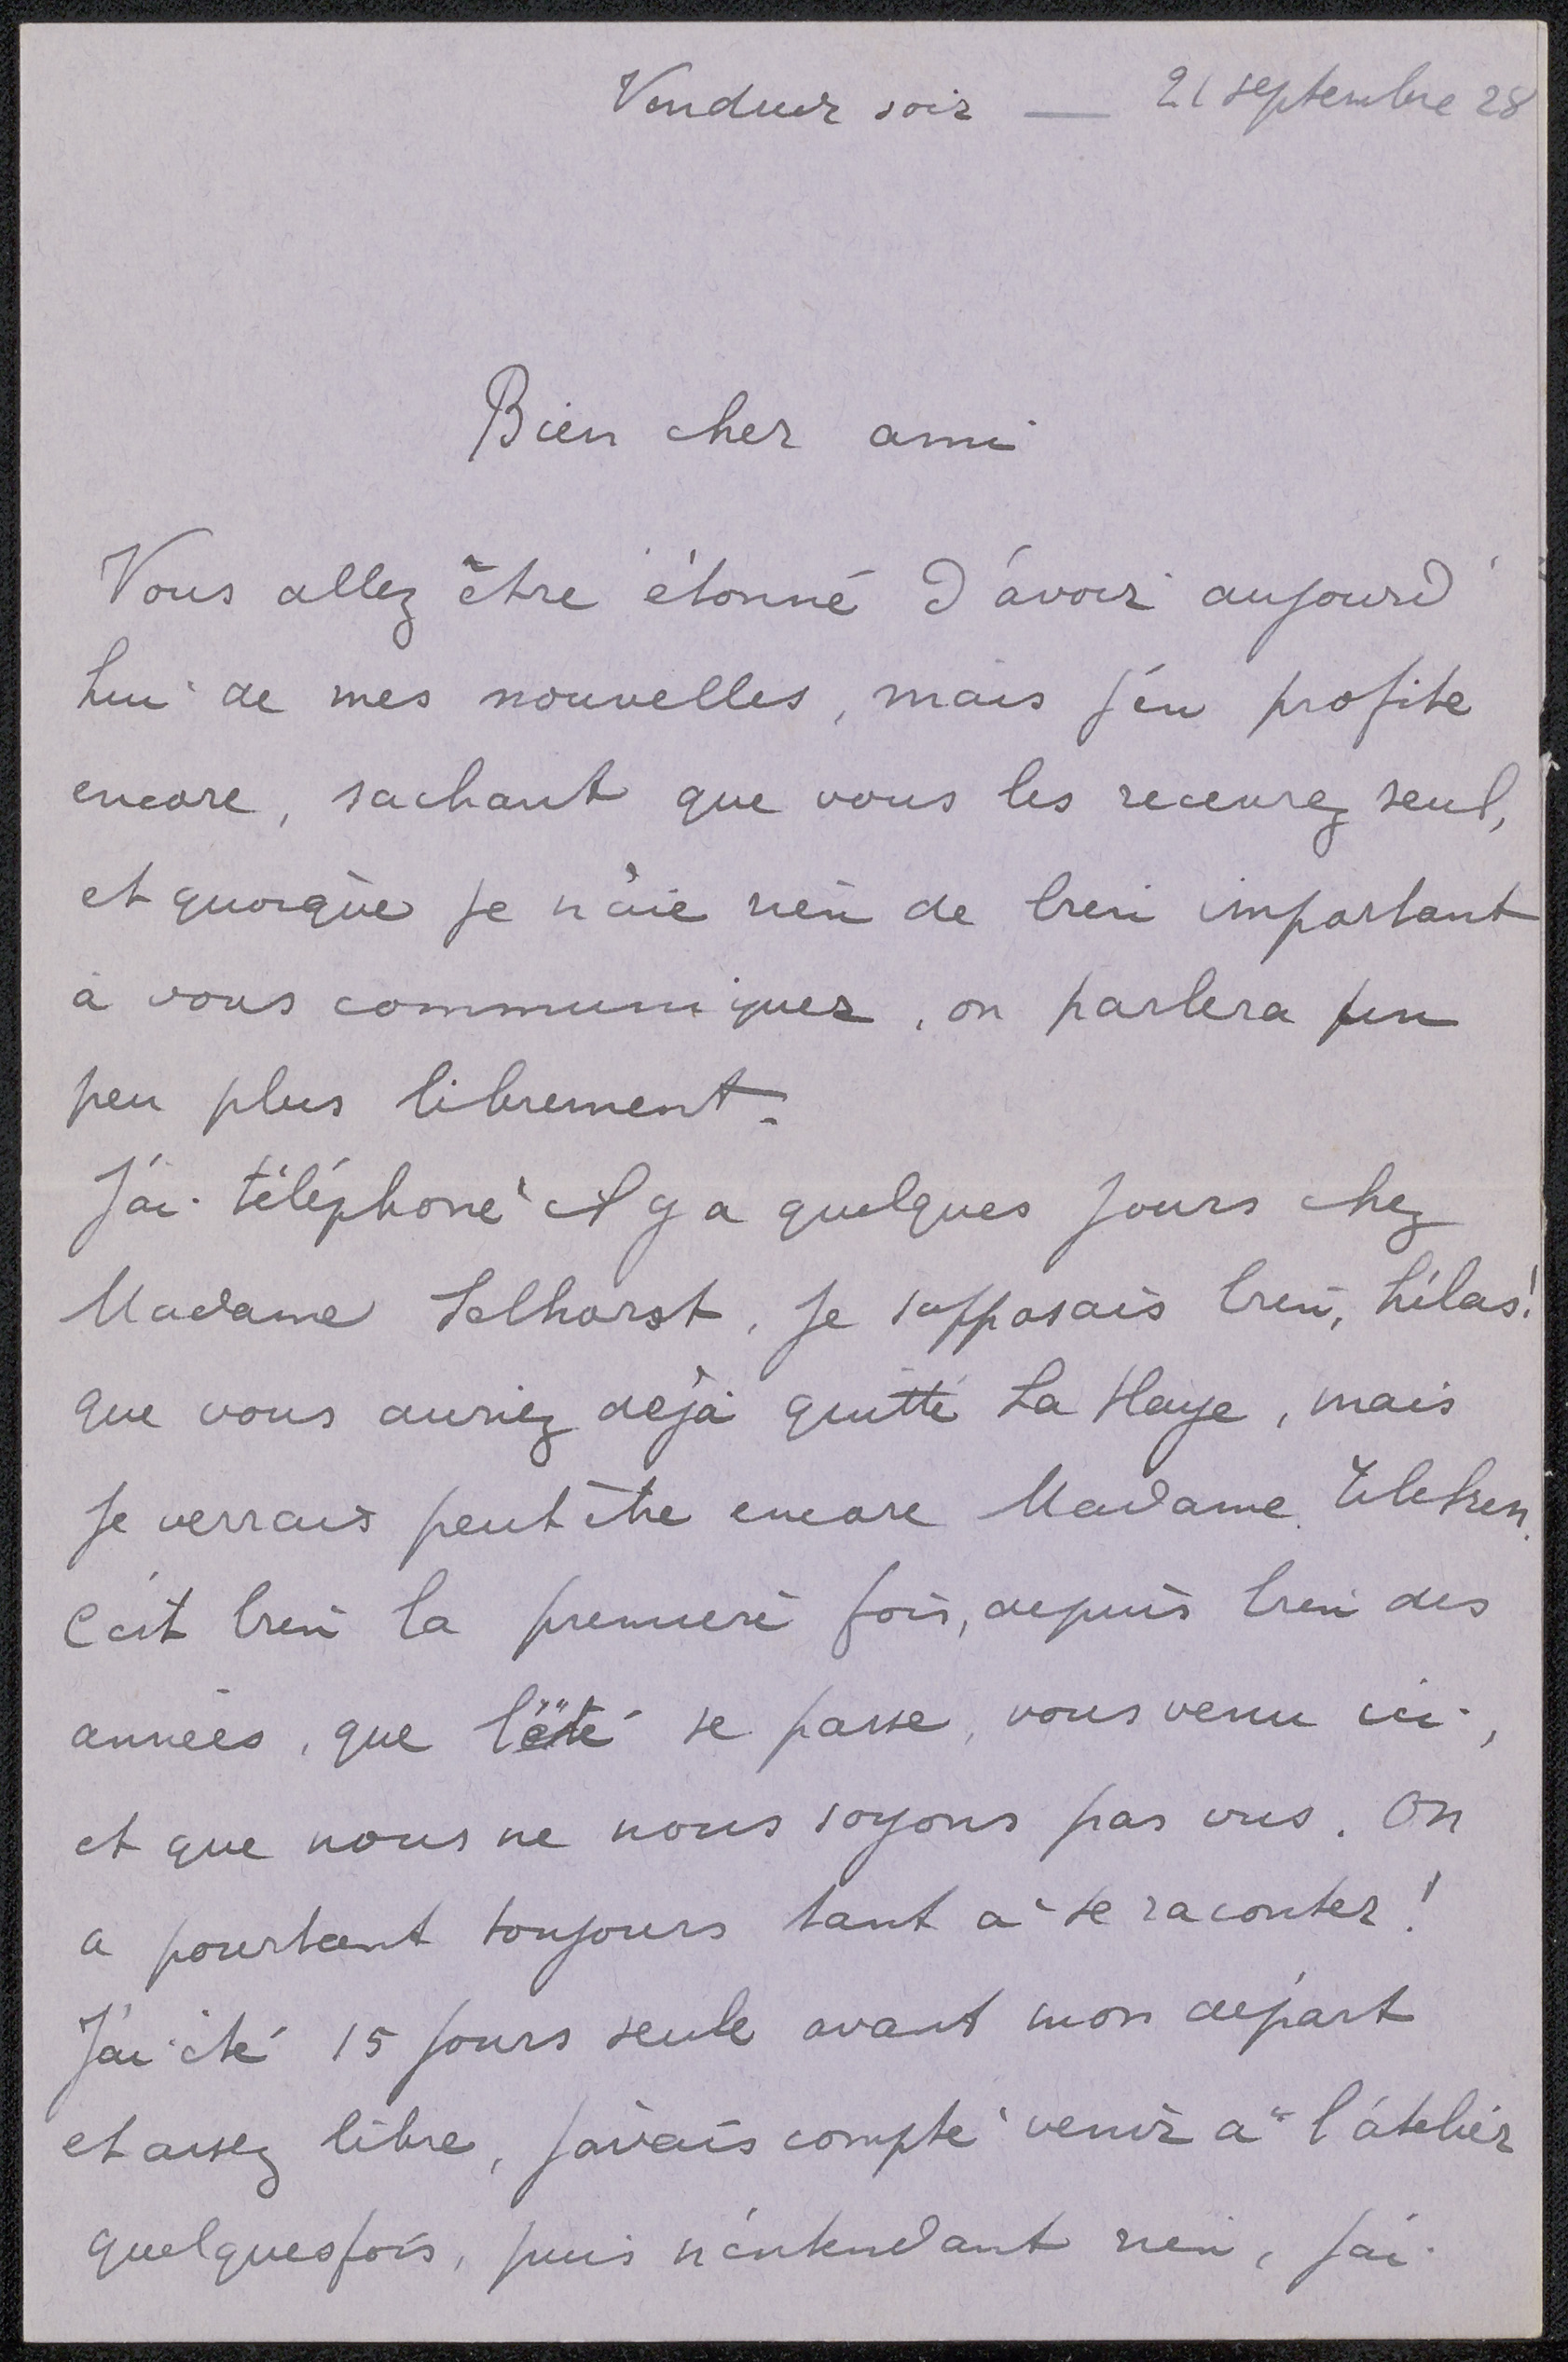 Vendredi soir — 21 septembre 28
Bien cher ami
Vous allez être étonné d'avoir aujourd'
hui de mes nouvelles, mais j'en profite
encore, sachant que vous les recevrez seul,
et quoique je n'aie rien de bien important
à vous communiquer, on parlera un
peu plus librement.
J'ai téléphoné il y a quelques jours chez
Madame Selhorst, je supposais bien, hélas!
que vous auriez déjà quitté La Haye, mais
je verrais peut être encore Madame Zilcken.
C'est bien la première fois, depuis bien des
années, que l'été se passe, vous venu ici,
et que nous ne nous soyons pas vus. On
a pourtant toujours tant à se raconter!
J'ai été 15 jours seule avant mon départ
et assez libre, j'avais compté venir à l'atelier
quelquesfois, puis n'entendant rien, j'ai